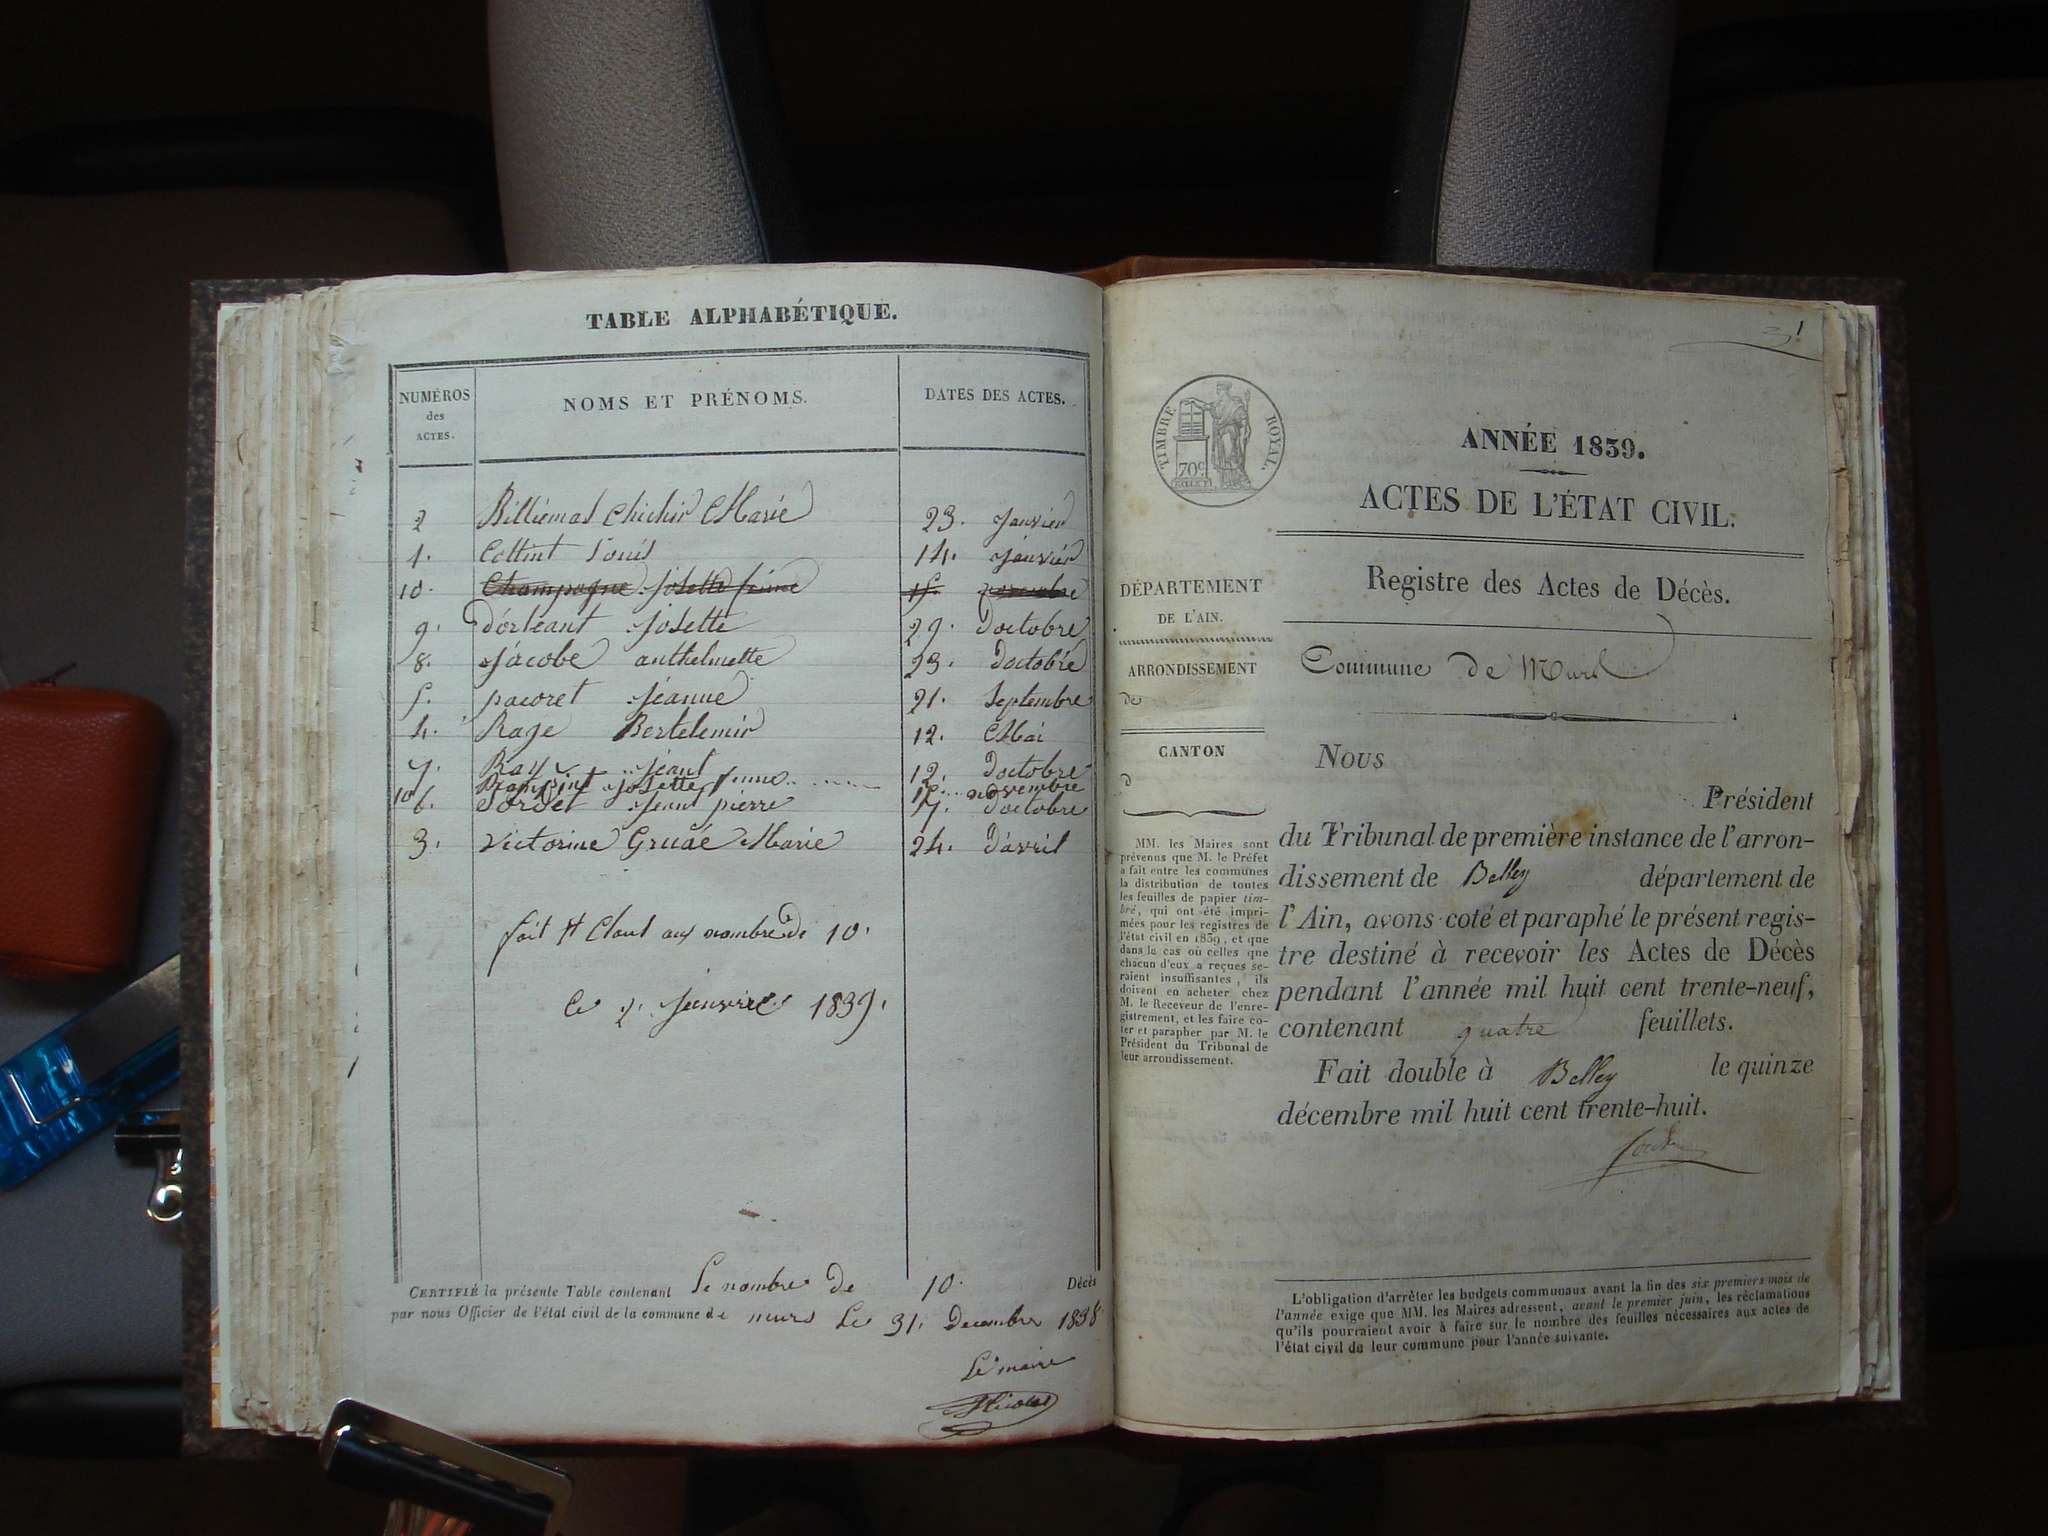 TABLE ALPHABÉTIQUE.
NUMÉROS
des
ACTES.
NOMS ET PRÉNOMS.
DATES DES ACTES.
2 Billiemas Chichin Marie 23. Janvier
1. Collint Louis 14. janvier
10. Champagne Josette femme 15. novembre
9. D'orléant Josette 29. Doctobre
8. Jacobe anthelmette 23. Doctobre
5. pacoret Jeanne 21. Septembre
4. Raje Bertelemir 12. Mai
7. Ray Jeant 12. Doctobre
10 Josette femme 15. novembre
6. Sordet Jeant pierre 17. Doctobre
3. Victorine Gruaé Marie 24. D'avril
fait et Clout aux nombre de 10.
Ce 2. Janvier 1839.
CERTIFIÉ la présente Table contenant Le nombre de 10. Décès
par nous Officier de l'état civil de la commune de murs Le 31. Decembre 1838
Le maire
1
TIMBRE ROYAL.
70c
ANNÉE 1839.
ACTES DE L'ÉTAT CIVIL.
DÉPARTEMENT
DE L'AIN.
ARRONDISSEMENT
de
CANTON
d
MM. les Maires sont
prévenus que M. le Préfet
a fait entre les communes
la distribution de toutes
les feuilles de papier tim-
bré, qui ont été impri-
mées pour les registres de
l'état civil en 1839, et que
dans le cas où celles que
chacun d'eux a reçues se-
raient insuffisantes, ils
doivent en acheter chez
M. le Receveur de l'enre-
gistrement, et les faire co-
ter et parapher par M. le
Président du Tribunal de
leur arrondissement.
Registre des Actes de Décès.
Commune de Murs
Nous
Président
du Tribunal de première instance de l'arron-
dissement de Belley département de
l'Ain, avons coté et paraphé le présent regis-
tre destiné à recevoir les Actes de Décès
pendant l'année mil huit cent trente-neuf,
contenant quatre feuillets.
Fait double à Belley le quinze
décembre mil huit cent trente-huit.
L'obligation d'arrêter les budgets communaux avant la fin des six premiers mois de
l'année exige que MM. les Maires adressent, avant le premier juin, les réclamations
qu'ils pourraient avoir à faire sur le nombre des feuilles nécessaires aux actes de
l'état civil de leur commune pour l'année suivante.